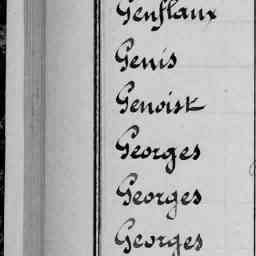 Genflaux
Genis
Genoist
Georges
Georges
Georges